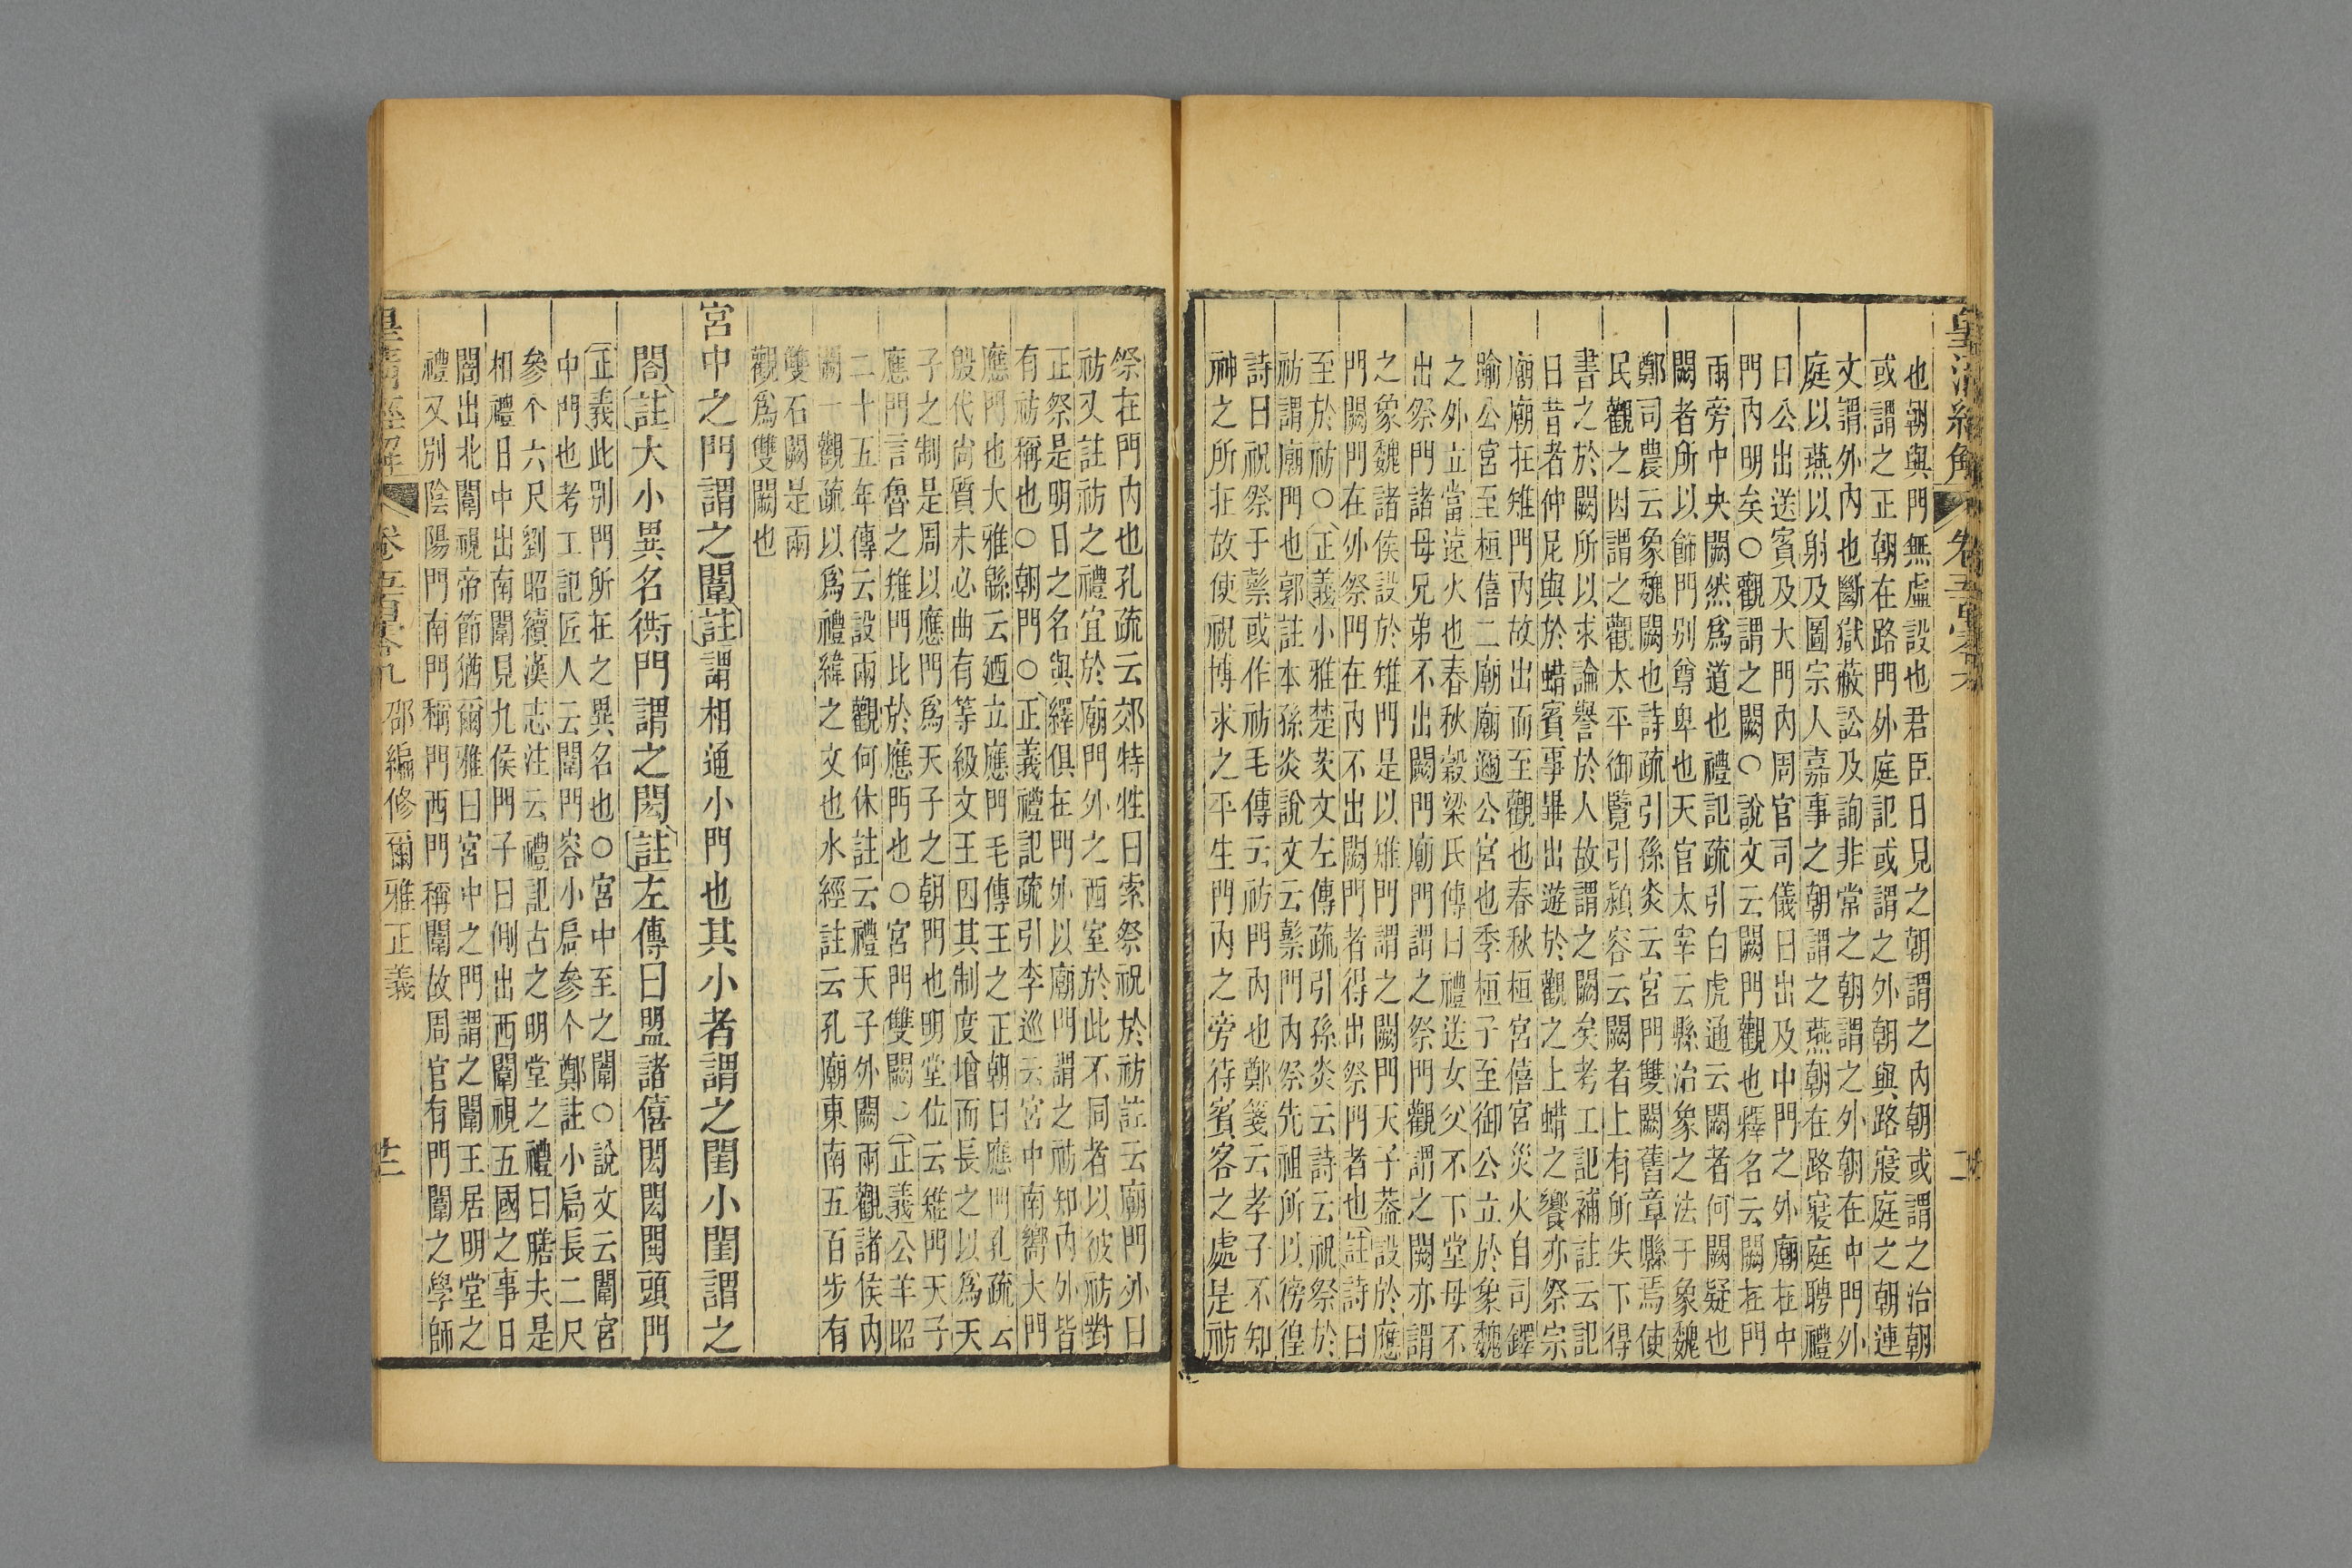 皇清經解
也朝與門無虛設也君臣日見之朝謂之內朝或謂之治朝
或謂之正朝在路門外庭記或謂之外朝與路寢庭之朝連
文謂外內也斷獄蔽訟及詢非常之朝謂之外朝在中門外
庭以燕以射及圖宗人嘉事之朝謂之燕朝在路寢庭聘禮
曰公出送賓及大門內周官司儀曰出及中門之外廟在中
門內明矣○觀謂之闕○說文云闕門觀也釋名云闕在門
兩旁中央闕然爲道也禮記疏引白虎通云闕者何闕疑也
闕者所以飾門別尊卑也天官太宰云縣治象之法于象魏
鄭司農云象魏闕也詩疏引孫炎云宮門雙闕舊章縣焉使
民觀之因謂之觀太平御覽引潁容云闕者上有所失下得
書之於闕所以求論譽於人故謂之闕矣考工記補註云記
曰昔者仲尼與於蜡賓事畢出遊於觀之上蜡之饗亦祭宗
廟廟在雉門內故出而至觀也春秋桓宮僖宮災火自司鐸
踰公宮至桓僖二廟廟邇公宮也季桓子至御公立於象魏
之外立當遠火也春秋穀梁氏傳曰禮送女父不下堂母不
出祭門諸母兄弟不出闕門廟門謂之祭門觀謂之闕亦謂
之象魏諸侯設於雉門是以雉門謂之闕門天子蓋設於應
門闕門在外祭門在內不出闕門者得出祭門者也註詩曰
至於祊○正義小雅楚茨文左傳疏引孫炎云詩云祝祭於
祊謂廟門也郭註本孫炎說文云鬃門內祭先祖所以徬徨
詩曰祝祭于鬃或作祊毛傳云祊門內也鄭箋云孝子不知
神之所在故使祝博求之平生門內之旁待賓客之處是祊
祭在門內也孔疏云郊特牲曰索祭祝於祊註云廟門外曰
祊又註祊之禮宜於廟門外之西室於此不同者以彼祊對
正祭是明日之名與繹俱在門外以廟門謂之祊知內外皆
有祊稱也○朝門○正義禮記疏引李巡云宮中南嚮大門
應門也大雅緜云迺立應門毛傳王之正朝曰應門孔疏云
殷代尚質未必曲有等級文王因其制度增而長之以爲天
子之制是周以應門爲天子之朝門也明堂位云雉門天子
應門言魯之雉門比於應門也○宮門雙闕○正義公羊昭
二十五年傳云設兩觀何休註云禮天子外闕兩觀諸侯內
闕一觀疏以爲禮緯之文也水經註云孔廟東南五百步有
雙石闕是兩
觀爲雙闕也
宮中之門謂之闈註謂相通小門也其小者謂之閨小閨謂之
閤註大小異名衖門謂之閎註左傳曰盟諸僖閎閎閈頭門
正義此別門所在之異名也○宮中至之闈○說文云闈宮
中門也考工記匠人云闈門容小扃參个鄭註小扃長二尺
參个六尺劉昭續漢志注云禮記古之明堂之禮曰膳夫是
相禮日中出南闈見九侯門子日側出西闈視五國之事日
闇出北闈視帝節猶爾雅曰宮中之門謂之闈王居明堂之
禮又別陰陽門南門稱門西門稱闈故周官有門闈之學師
邵編修爾雅正義